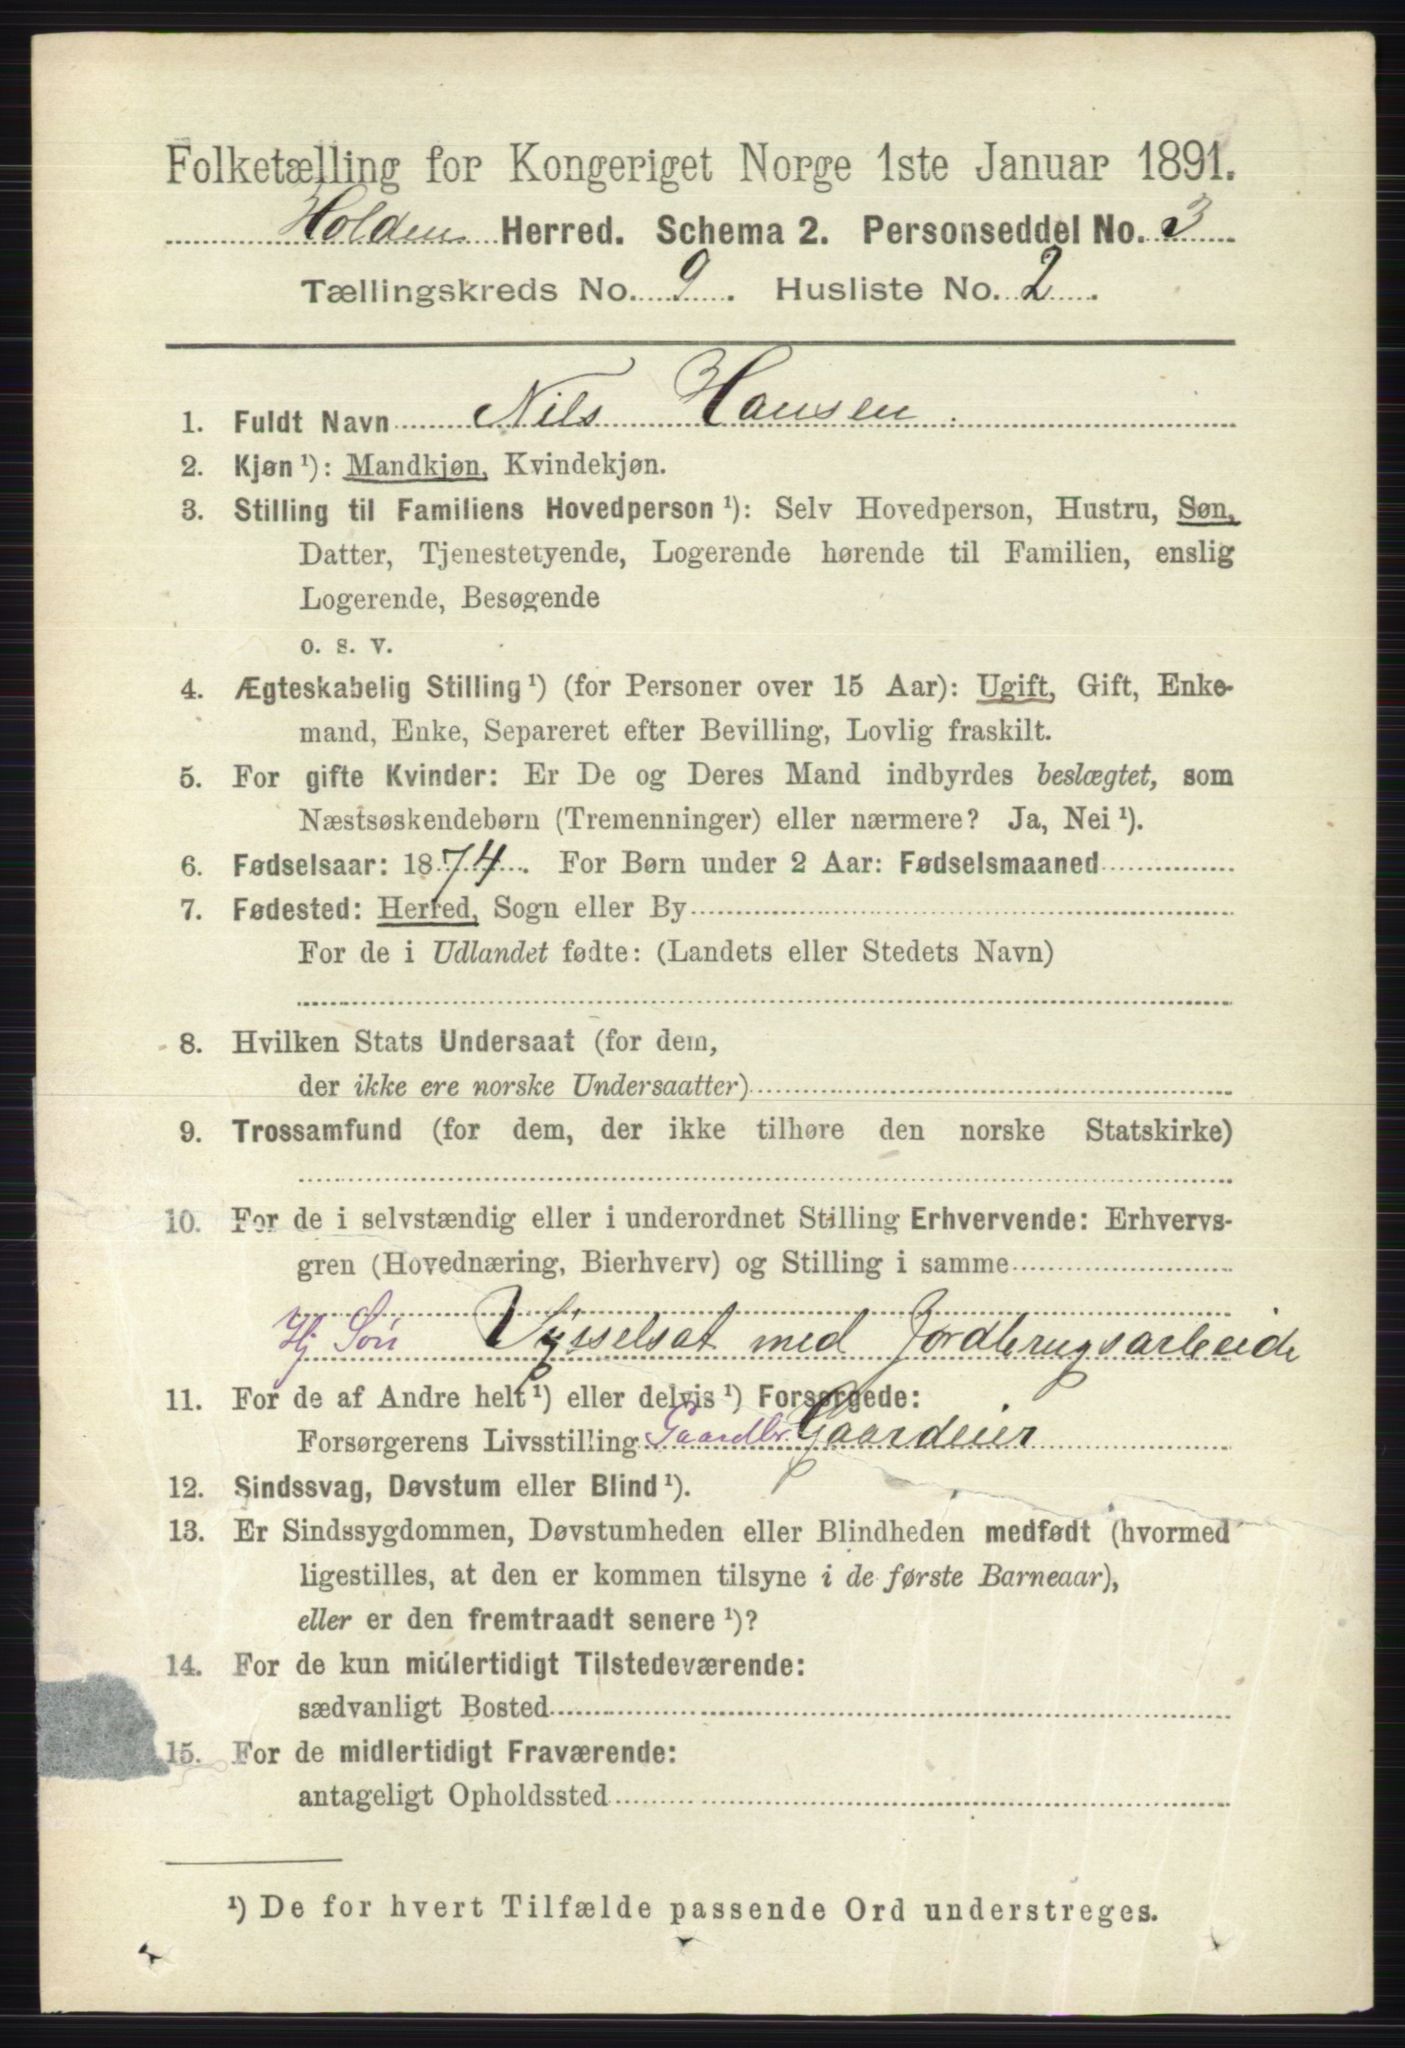 Folketælling for Kongeriget Norge 1ste Januar 1891.
Holden Herred. Schema 2. Personseddel No. 3
Tællingskreds No. 9. Husliste No. 2.
1. Fuldt Navn Nils Hansen.
2. Kjøn ¹): Mandkjøn, Kvindekjøn.
3. Stilling til Familiens Hovedperson ¹): Selv Hovedperson, Hustru, Søn,
Datter, Tjenestetyende, Logerende hørende til Familien, enslig
Logerende, Besøgende
o. s. v.
4. Ægteskabelig Stilling ¹) (for Personer over 15 Aar): Ugift, Gift, Enke-
mand, Enke, Separeret efter Bevilling, Lovlig fraskilt.
5. For gifte Kvinder: Er De og Deres Mand indbyrdes beslægtet, som
Næstsøskendebørn (Tremenninger) eller nærmere? Ja, Nei ¹).
6. Fødselsaar: 1874. For Børn under 2 Aar: Fødselsmaaned
7. Fødested: Herred, Sogn eller By
For de i Udlandet fødte: (Landets eller Stedets Navn)
8. Hvilken Stats Undersaat (for dem,
der ikke ere norske Undersaatter)
9. Trossamfund (for dem, der ikke tilhøre den norske Statskirke)
10. For de i selvstændig eller i underordnet Stilling Erhvervende: Erhvervs-
gren (Hovednæring, Bierhverv) og Stilling i samme
Hj Søn Sysselsat med Jordbrugsarbeide
11. For de af Andre helt ¹) eller delvis ¹) Forsørgede:
Forsørgerens Livsstilling Gaardbr. Gaardeier
12. Sindssvag, Døvstum eller Blind ¹).
13. Er Sindssygdommen, Døvstumheden eller Blindheden medfødt (hvormed
ligestilles, at den er kommen tilsyne i de første Barneaar),
eller er den fremtraadt senere ¹)?
14. For de kun midlertidigt Tilstedeværende:
sædvanligt Bosted
15. For de midlertidigt Fraværende:
antageligt Opholdssted
¹) De for hvert Tilfælde passende Ord understreges.